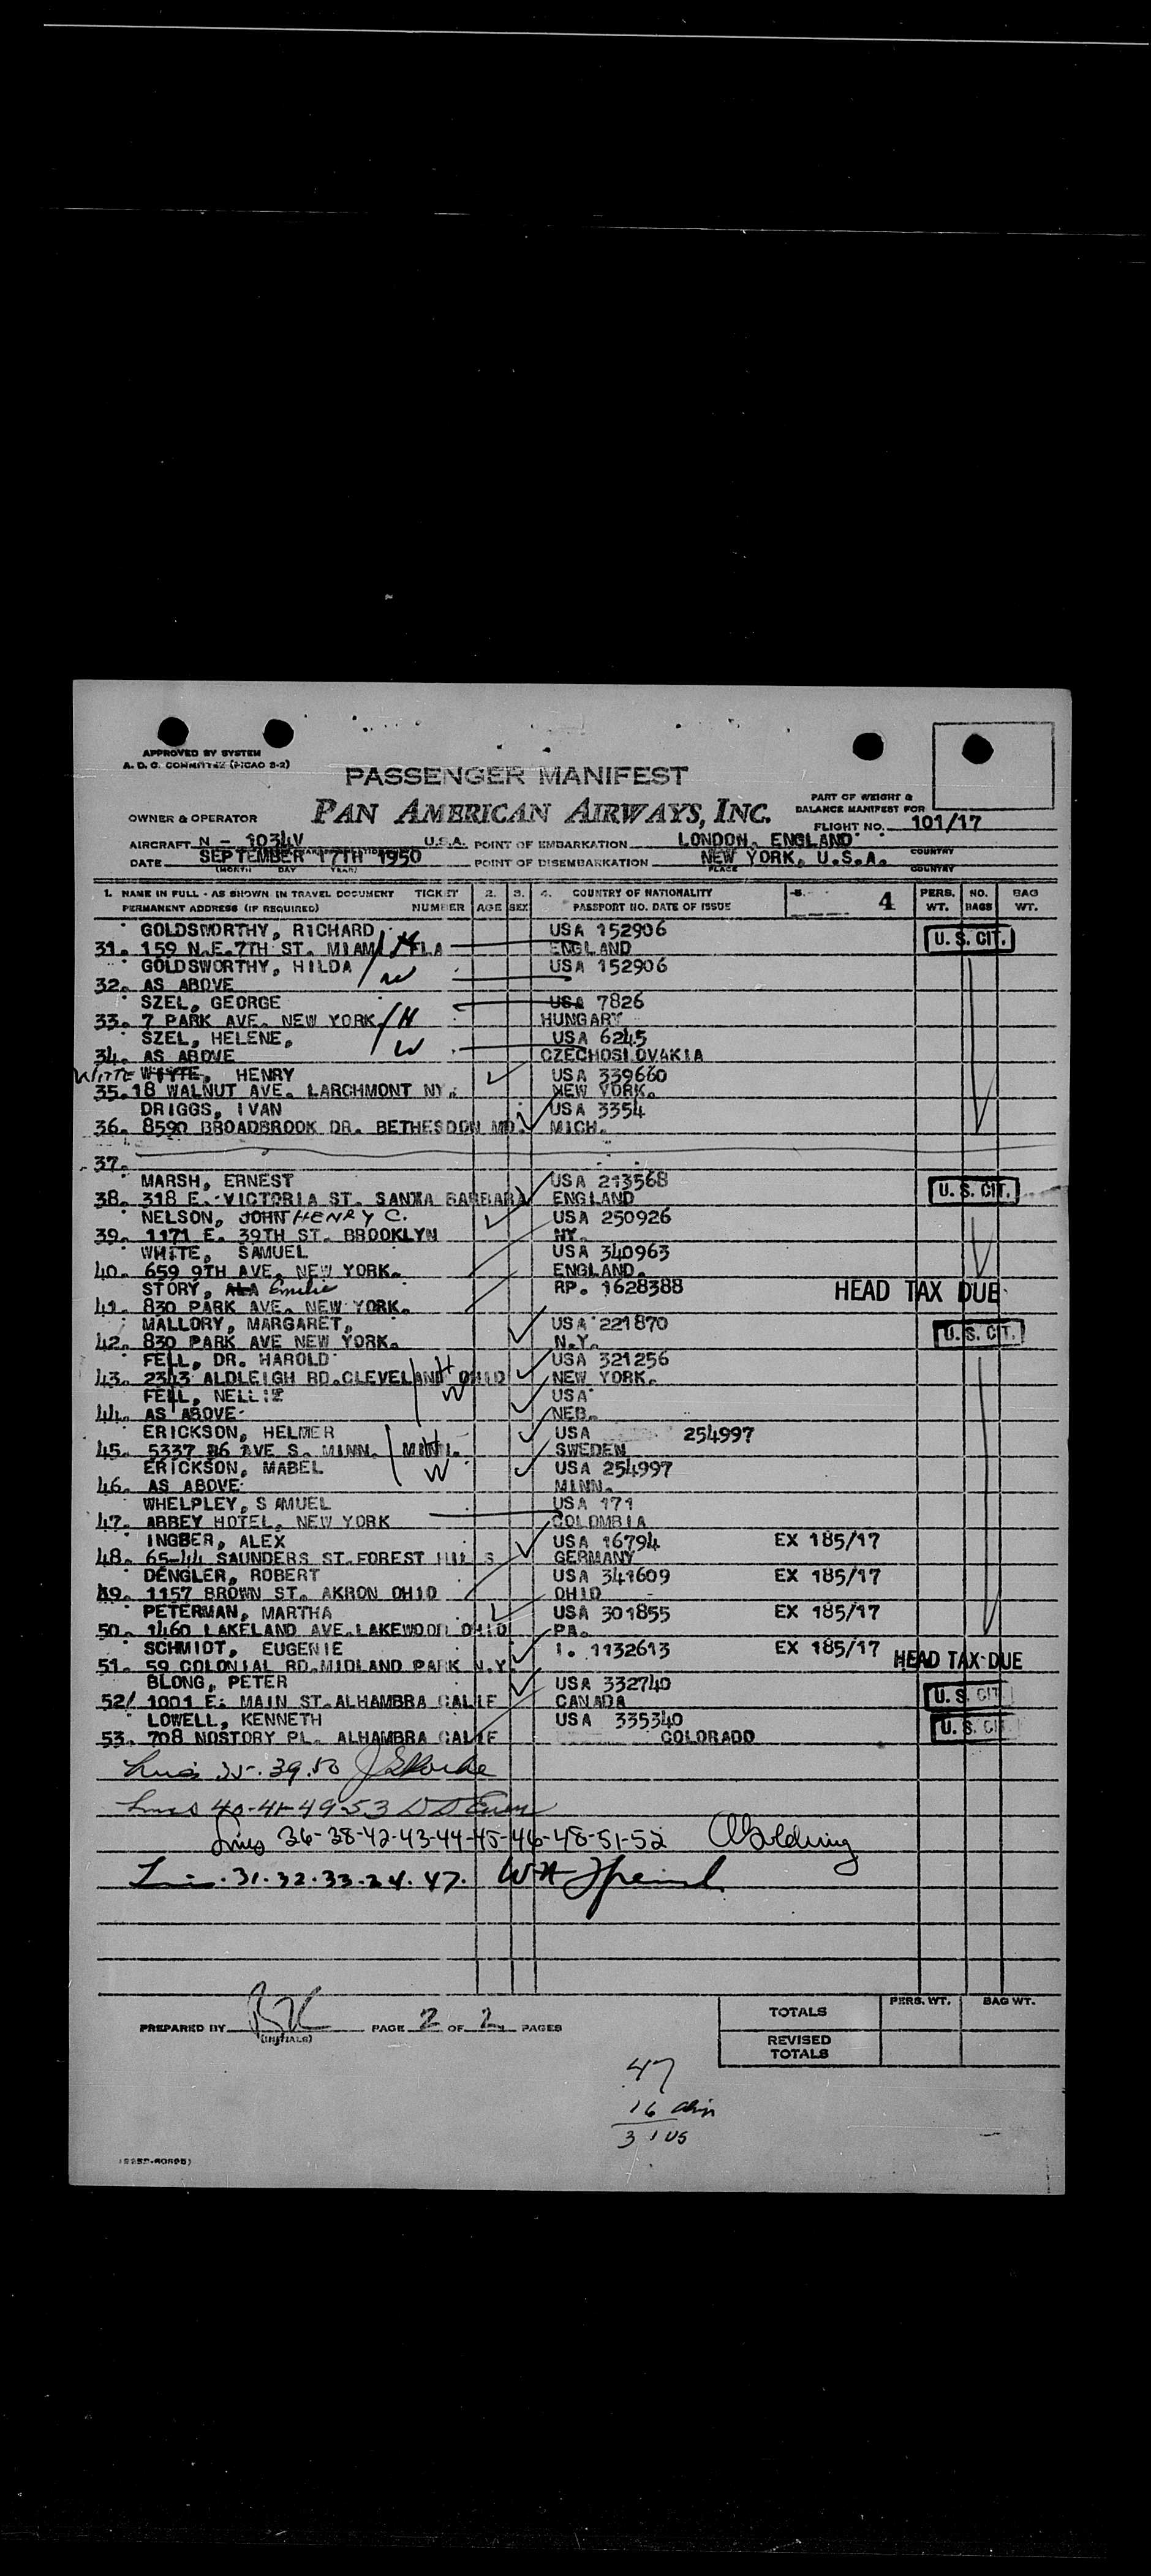 APPROVED BY SYSTEM
A. D. C. COMMITTEE (PICAO 2-2)
PASSENGER MANIFEST
PAN AMERICAN AIRWAYS, INC.
PART OF WEIGHT &
BALANCE MANIFEST FOR
OWNER & OPERATOR
FLIGHT NO. 101/17
AIRCRAFT N - 1034V U.S.A. POINT OF EMBARKATION LONDON, ENGLAND COUNTRY
DATE SEPTEMBER 17TH 1950 POINT OF DISEMBARKATION NEW YORK, U.S.A.
(MONTH DAY YEAR) PLACE COUNTRY
1. NAME IN FULL - AS SHOWN IN TRAVEL DOCUMENT TICKET 2. 3. 4. COUNTRY OF NATIONALITY 4 PERS. NO. BAG
PERMANENT ADDRESS (IF REQUIRED) NUMBER AGE SEX PASSPORT NO. DATE OF ISSUE WT. BAGS WT.
GOLDSWORTHY, RICHARD USA 152906 U. S. CIT.
31. 159 N.E.7TH ST. MIAMI FLA H ENGLAND
GOLDSWORTHY, HILDA W USA 152906
32. AS ABOVE
SZEL, GEORGE USA 7826
33. 7 PARK AVE. NEW YORK H HUNGARY
SZEL, HELENE, USA 6245
34. AS ABOVE W CZECHOSLOVAKIA
WITTE WTYTE, HENRY USA 339660
35. 18 WALNUT AVE. LARCHMONT NY. NEW YORK.
DRIGGS, IVAN USA 3354
36. 8590 BROADBROOK DR. BETHESDON MD. MICH.
37.
MARSH, ERNEST USA 213568 U. S. CIT.
38. 318 E. VICTORIA ST. SANTA BARBARA ENGLAND
NELSON, JOHN HENRY C. USA 250926
39. 1171 E. 39TH ST. BROOKLYN NY.
WHITE, SAMUEL USA 340963
40. 659 9TH AVE. NEW YORK. ENGLAND.
STORY, ALA Emilie RP. 1628388 HEAD TAX DUE
41. 830 PARK AVE. NEW YORK.
MALLORY, MARGARET, USA 221870 U. S. CIT.
42. 830 PARK AVE NEW YORK. N.Y.
FELL, DR. HAROLD H USA 321256
43. 2343 ALDLEIGH RD.CLEVELAND OHIO NEW YORK.
FELL, NELLIE W USA
44. AS ABOVE NEB.
ERICKSON, HELMER USA 254997
45. 5337 36 AVE S. MINN. MINN. H SWEDEN
ERICKSON, MABEL W USA 254997
46. AS ABOVE MINN.
WHELPLEY, SAMUEL USA 171
47. ABBEY HOTEL, NEW YORK COLOMBIA
INGBER, ALEX USA 16794 EX 185/17
48. 65-44 SAUNDERS ST.FOREST HILLS GERMANY
DENGLER, ROBERT USA 341609 EX 185/17
49. 1157 BROWN ST. AKRON OHIO OHIO
PETERMAN, MARTHA USA 301855 EX 185/17
50. 1460 LAKELAND AVE.LAKEWOOD OHIO PA.
SCHMIDT, EUGENIE I. 1132613 EX 185/17 HEAD TAX DUE
51. 59 COLONIAL RD.MIDLAND PARK N.Y.
BLONG, PETER USA 332740 U. S. CIT.
52/ 1001 E. MAIN ST.ALHAMBRA CALIF CANADA
LOWELL, KENNETH USA 335340 U. S. CIT.
53. 708 NOSTORY PL. ALHAMBRA CALIF COLORADO
Lines 35-.39.50
Lines 40-41-49-53
Lines 36-38-42-43-44-45-46-48-51-52
31.32.33.34.47.
PREPARED BY (INITIALS) PAGE 2 OF 2 PAGES
PERS. WT. BAG WT.
TOTALS
REVISED
TOTALS
47
16
31 US